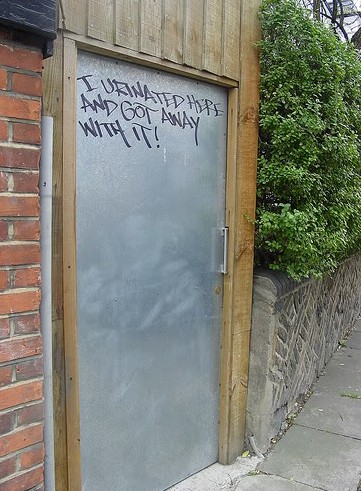 I URINATED HERE
AND GOT AWAY
WITH IT!